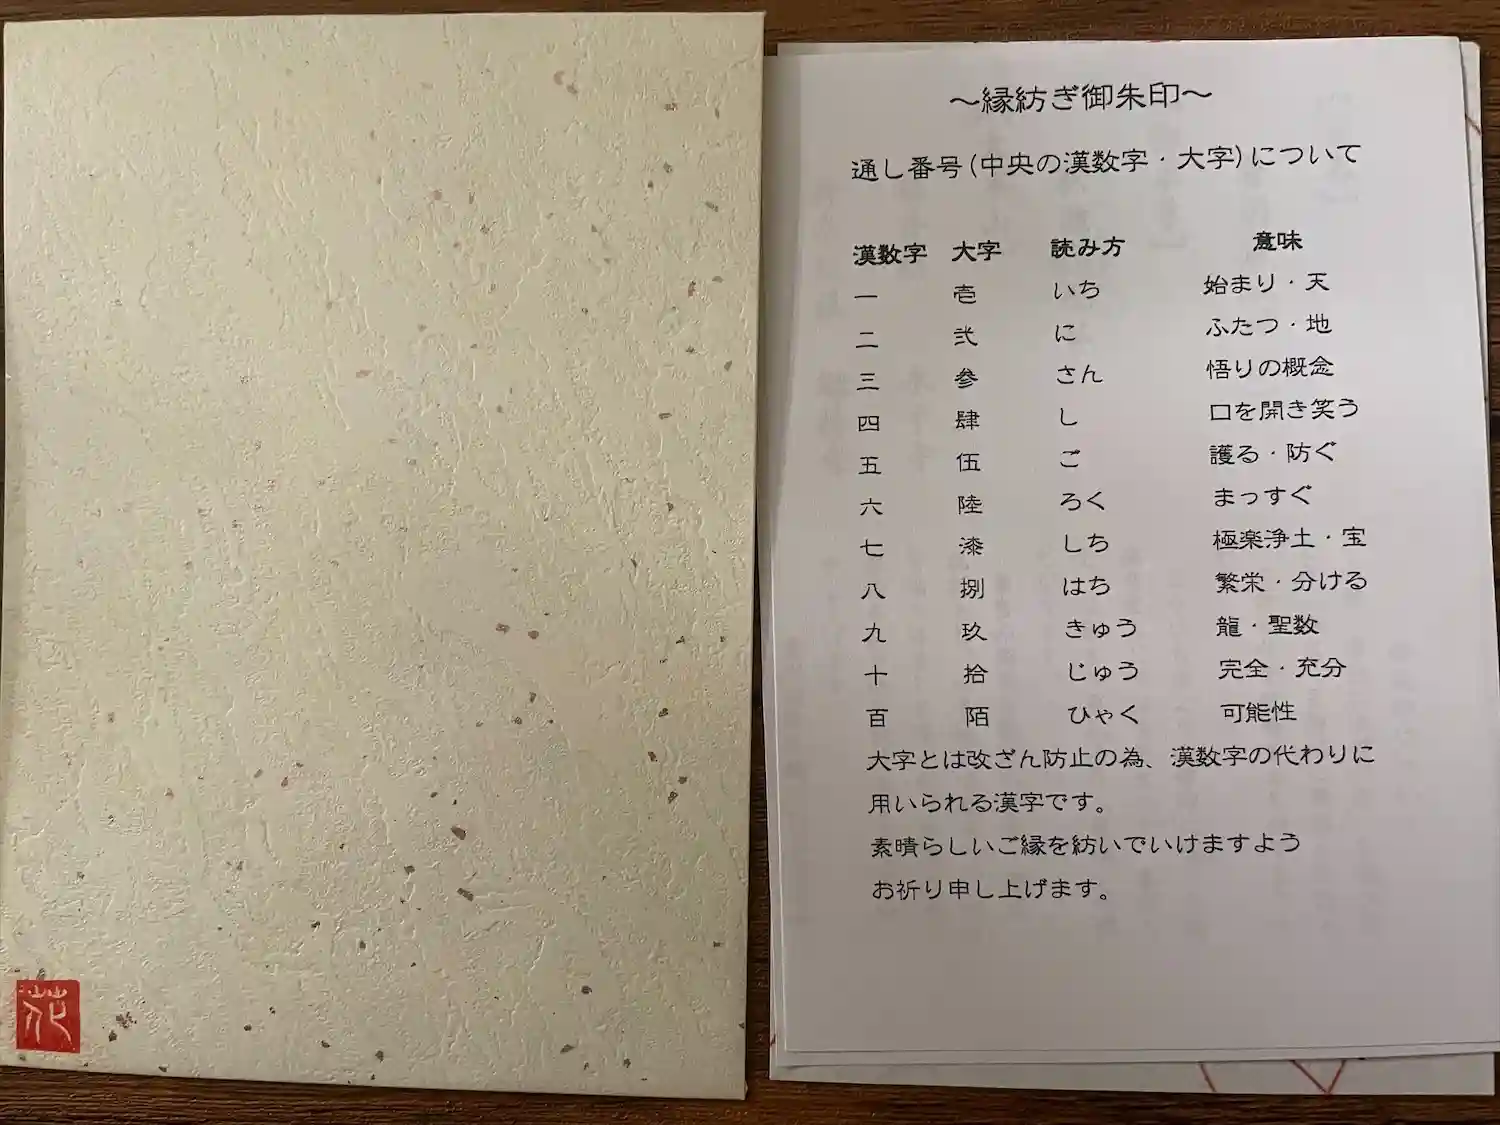 花
～縁紡ぎ御朱印～
通し番号(中央の漢数字・大字)について
漢数字 大字 読み方 意味
一 壱 いち 始まり・天
二 弐 に ふたつ・地
三 参 さん 悟りの概念
四 肆 し 口を開き笑う
五 伍 ご 護る・防ぐ
六 陸 ろく まっすぐ
七 漆 しち 極楽浄土・宝
八 捌 はち 繁栄・分ける
九 玖 きゅう 龍・聖数
十 拾 じゅう 完全・充分
百 陌 ひゃく 可能性
大字とは改ざん防止の為、漢数字の代わりに
用いられる漢字です。
素晴らしいご縁を紡いでいけますよう
お祈り申し上げます。